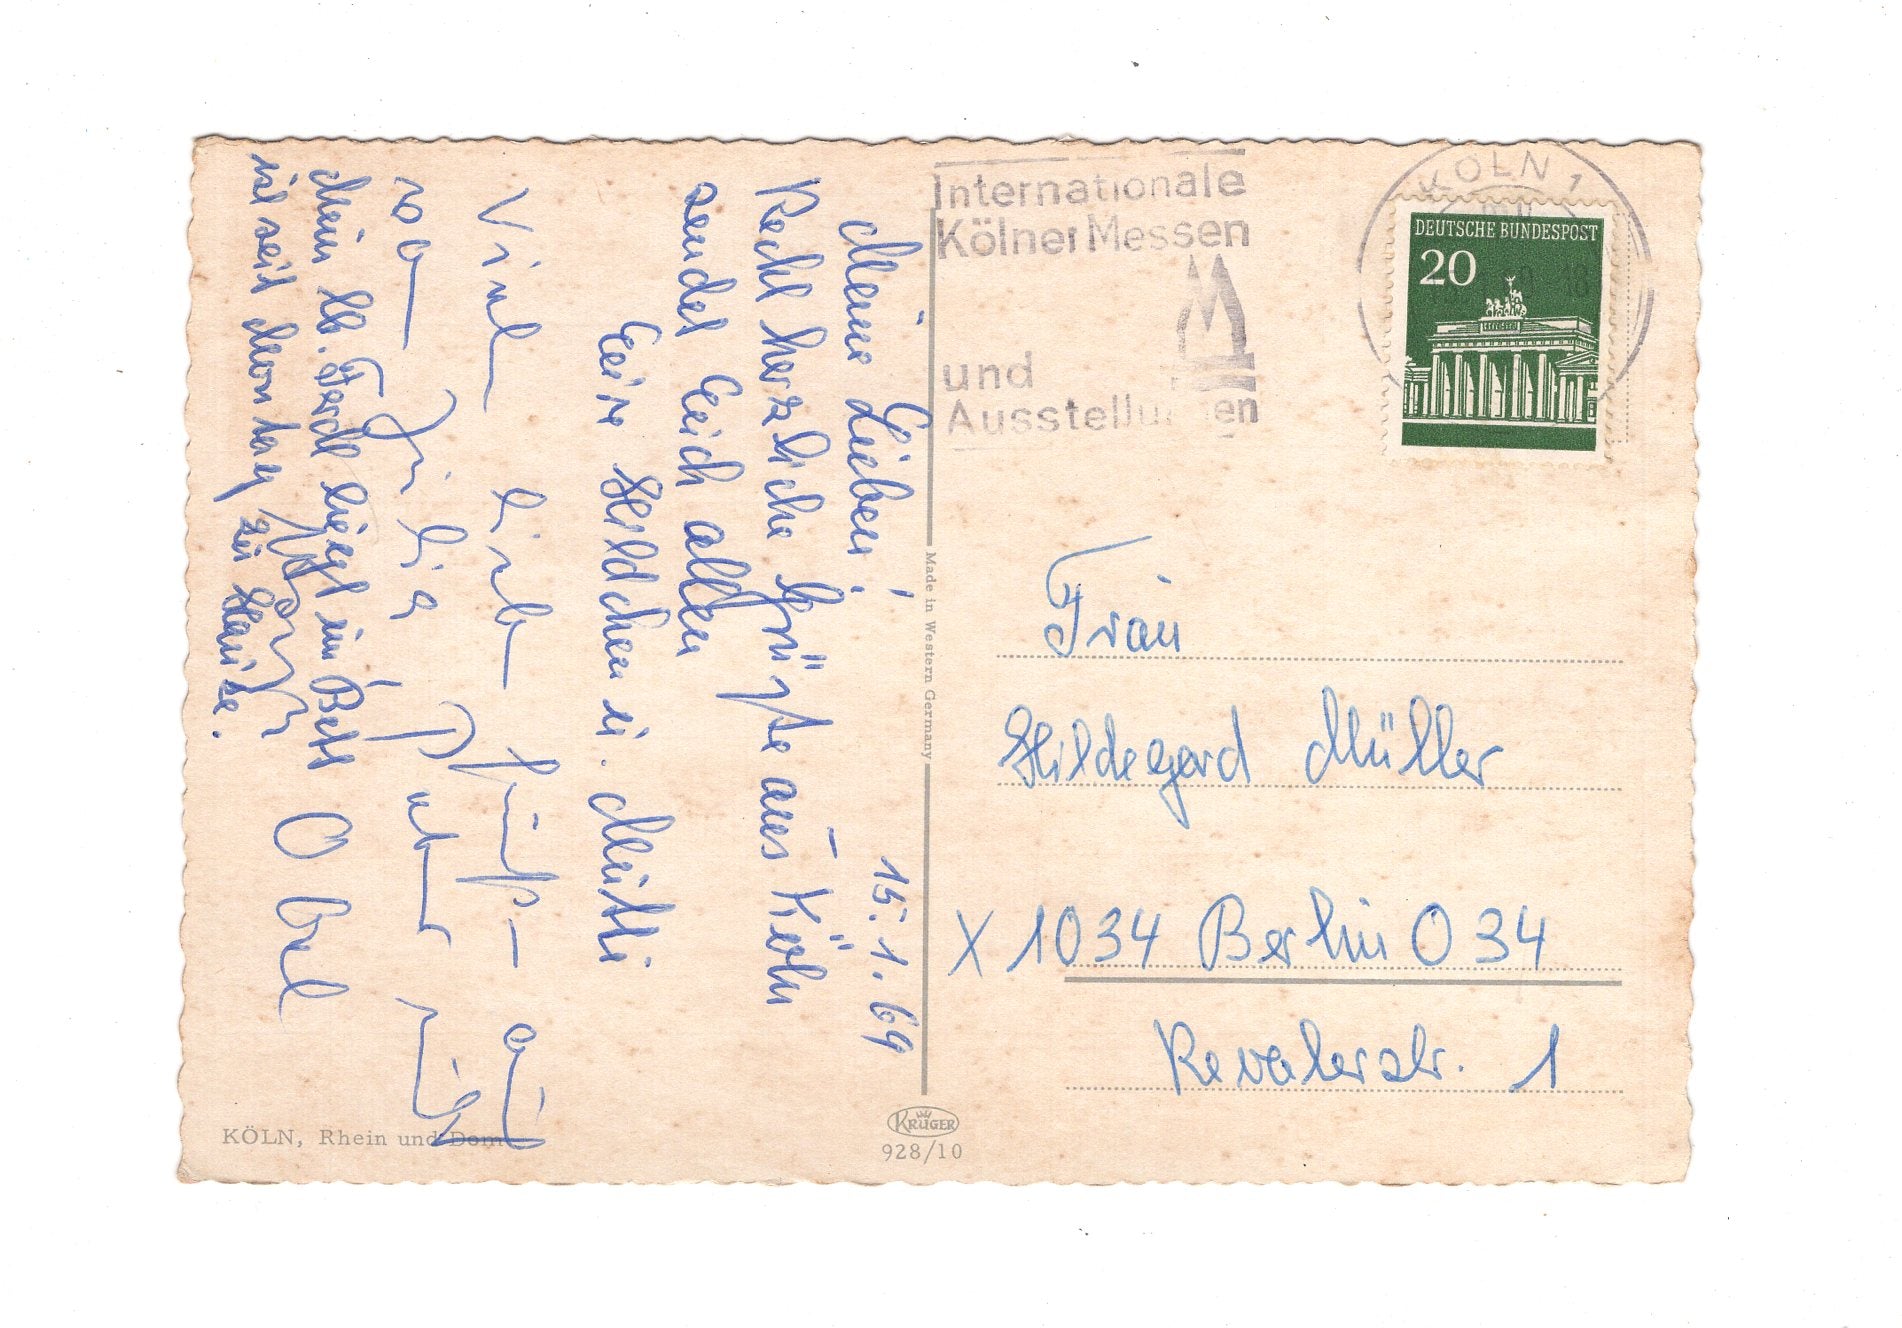 15.1.69
Meine Lieben!
Recht herzliche Grüße aus Köln
sendet Euch allen
Eure Hildchen u. Mutti
Viele liebe Grüße
von
Mein lb. Ferdl liegt im Bett
ist seit Montag zu Hause.
KÖLN, Rhein und Dom
Made in Western Germany
KRÜGER
928/10
Internationale
Kölner Messen
und
Ausstellungen
KÖLN 1
DEUTSCHE BUNDESPOST
20
Frau
Hildegard Müller
X 1034 Berlin O 34
Revalerstr. 1